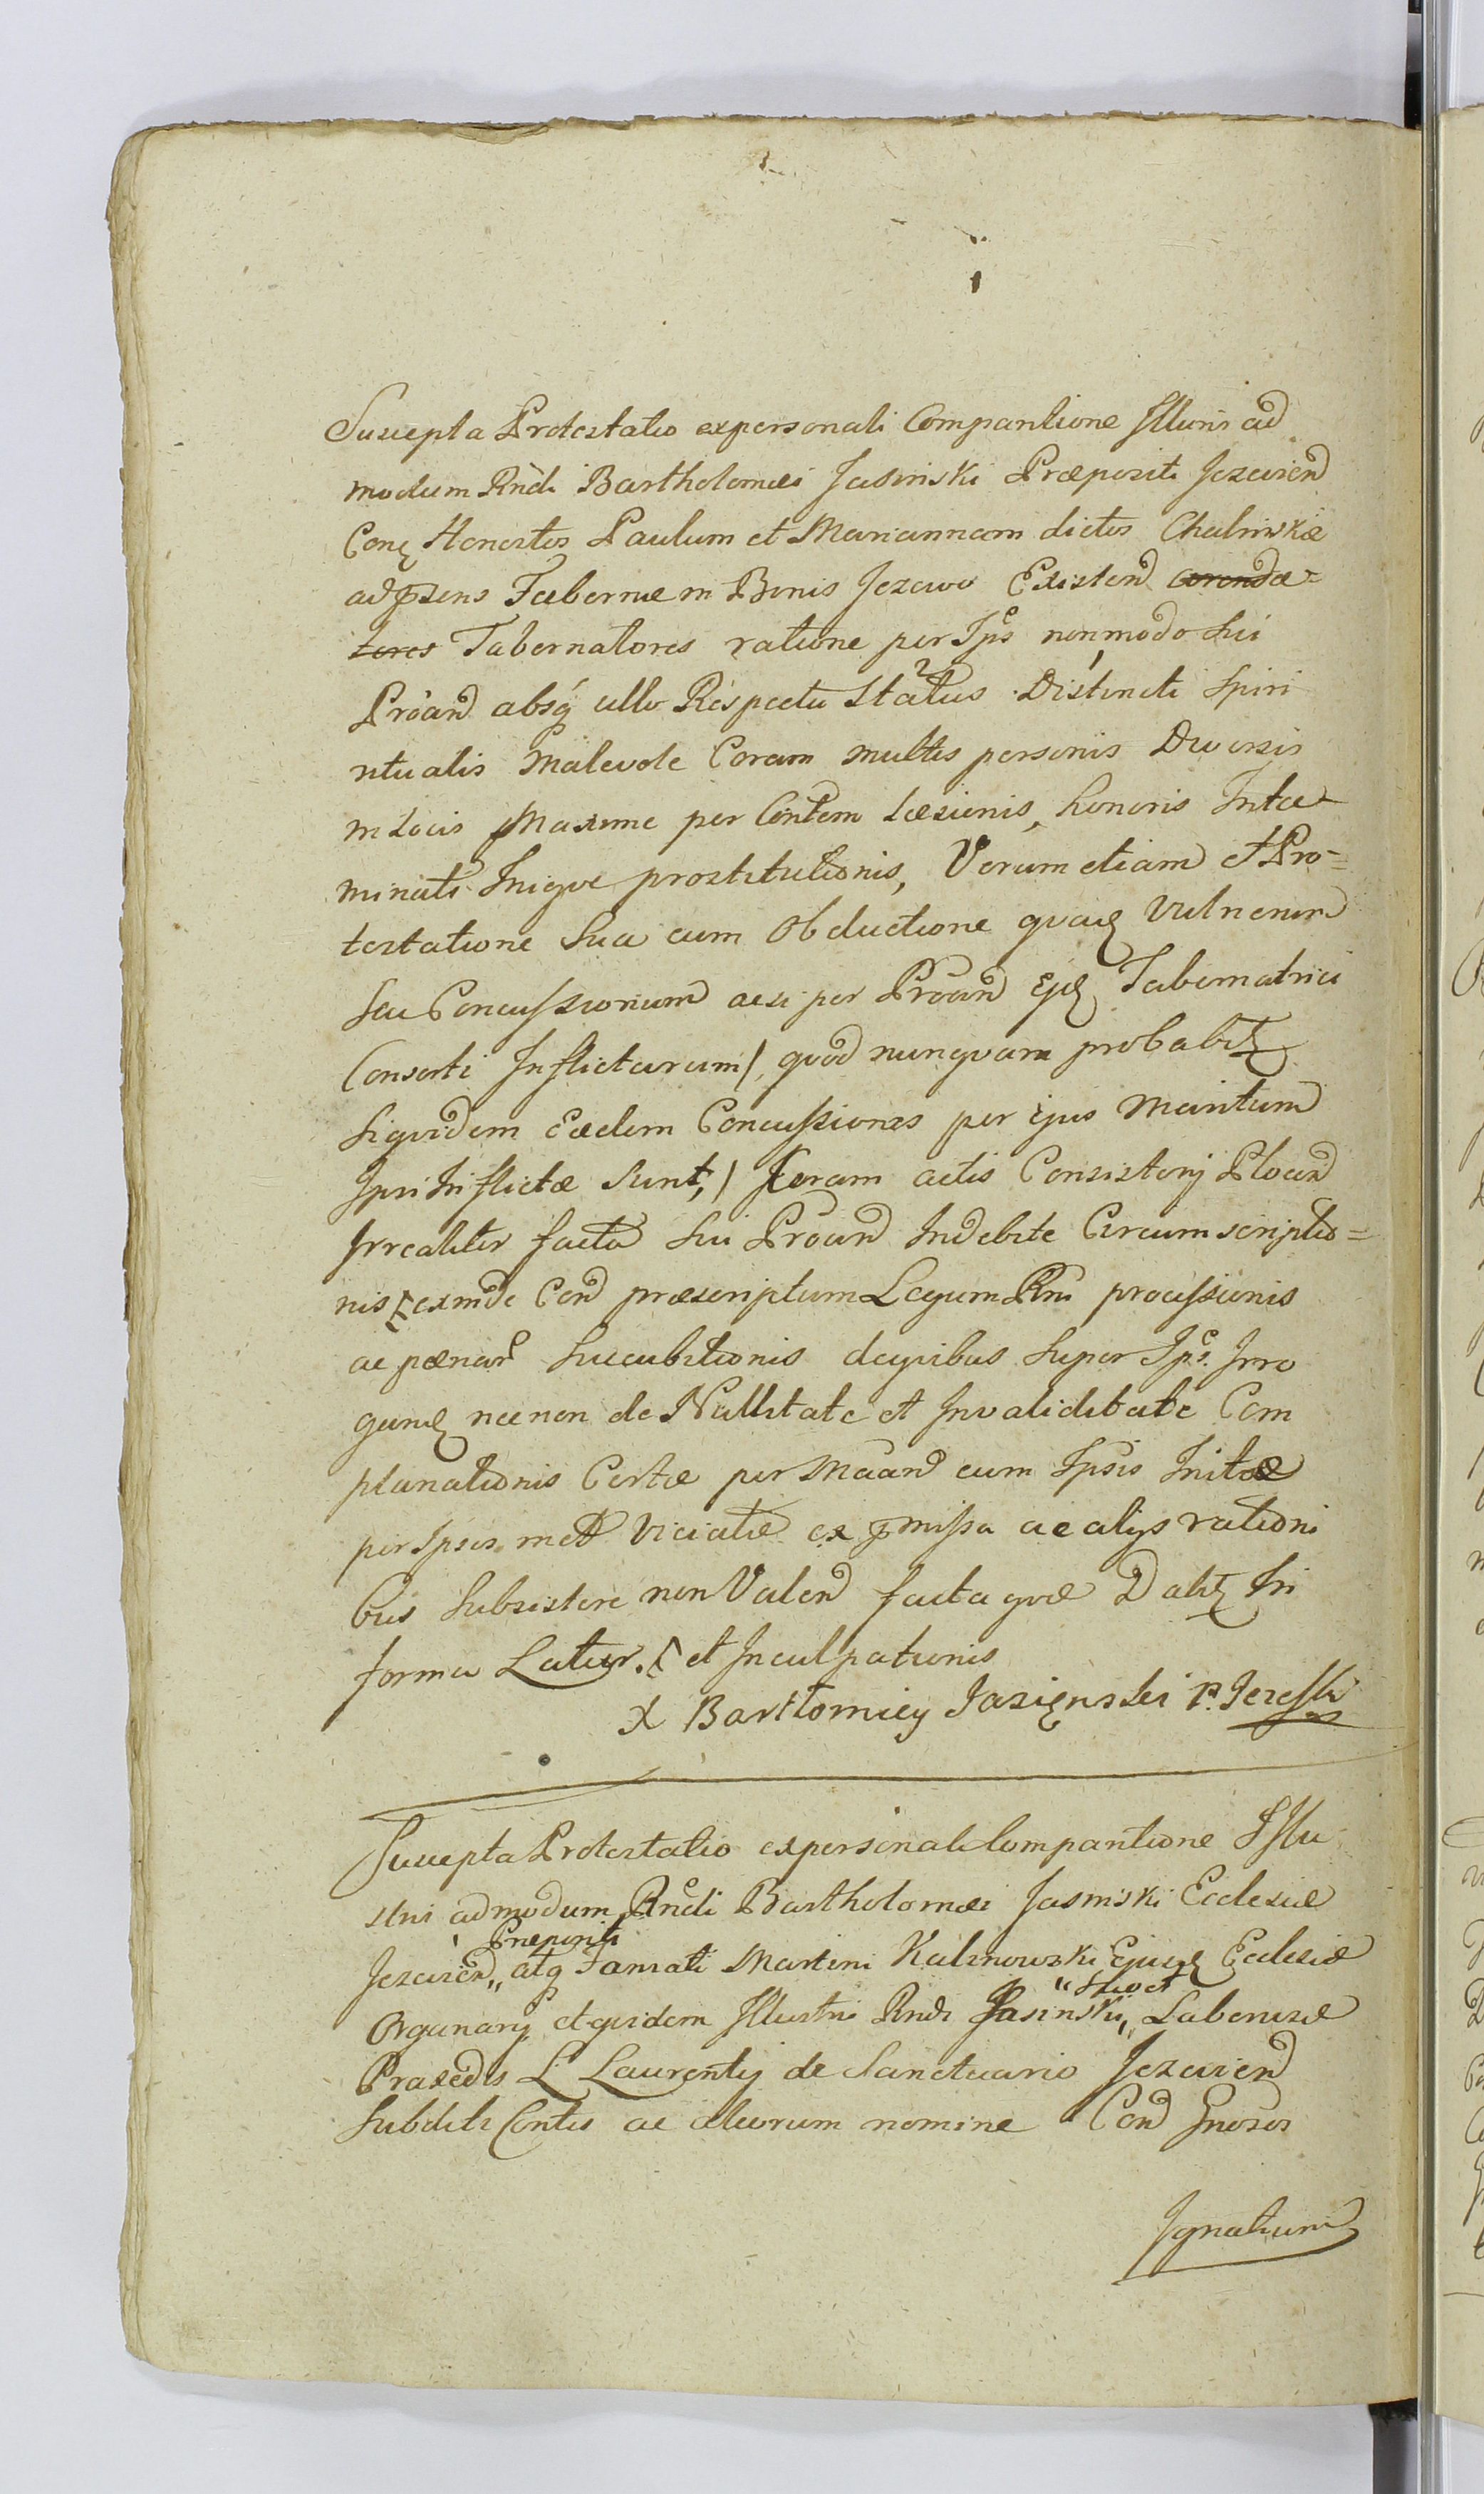 Suscepta Protestatio ex personali Comparitione Illuris ad
modum Rndi Bartholomei Jasinski Præpositi Jezevien
Conq Honestos Paulum et Mariannam dictos Chalinskie
ad psens Tabernæ in Bonis Jezewo Existen arendæ=
tores Tabernatores ratione per Ips non modo Sui
Proan absq ullo Respectu Status Distincti Spiri
ritualis Malevole Coram multis personis Diversis
in Locis Maxime per Contem Læsionis, honoris Intæ-
minati Inique prostitutionis, Verum etiam et Pro=
testatione Sua cum Obductione quaq Vulnerum
seu Concussionum acsi per Proan Ejq Tabernatrici
Consorti Inflictarum/, quod nunquam probabitq
Siquidem Eædem Concussiones per ejus Maritum
Ipsi Inflictæ Sunt,/ Coram actis Consistorij Plocen
Irrealiter facta Sui Proan Indebite Circumscriptio=
nis exinde Con præscriptum Legum Rni processionis
ac pænar Sucubitionis de quibus Super Ips. Irro
ganq nec non de Nullitate et Invaliditate Com
planationis Certæ per Maan cum Ipsis Initæ
per Ipsos met Viciatæ ex pmissa ac alijs rationi
bus Subsistere non Valen facta quæ Dabitq In
forma Latior. et Inculpationis
X Bartłomiey Jasięnski P. Jezeski
Suscepta Protestatio ex personali Comparitione Illu
stris admodum Rndi Bartholomei Jasinski Ecclesiæ
Præpositi
Jezevien,, atq Famati Martini Kalinowski Ejusq Ecclesiæ
"Suo et
Organarij et quidem Illustris Rndi Jasinski,, Laboriosæ
Praxedis L Laurentij de Sanctuario Jezevien
Subditi Contis ac aliorum nomine Con Gnosos
Ignatium